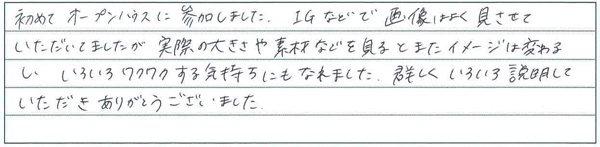 初めて オープンハウスに 参加しました. IGなどで 画像はよく見させて
いただいてましたが 実際の大きさや素材などを見るとまたイメージは変わる
し いろいろワクワクする気持ちにもなれました. 群しく いろいろ説明して
いただき ありがとうございました.